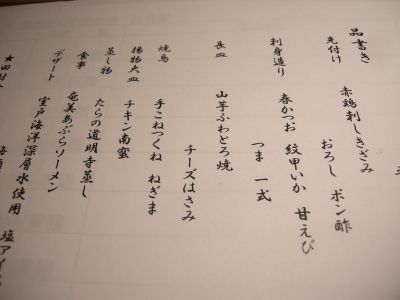 品書き
先付け 赤鶏刺しきざみ
おろし ポン酢
刺身造り 春かつお 紋甲いか 甘えび
つま 一式
長皿 山芋ふわとろ焼
チーズはさみ
焼鳥 手こねつくね ねぎま
揚物大皿 チキン南蛮
蒸し物 たらの道明寺蒸し
食事 奄美あぶらソーメン
デザート 室戸海洋深層水使用 塩アイ